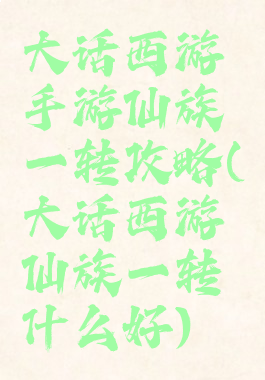 大话西游
手游仙族
一转攻略(
大话西游
仙族一转
什么好)